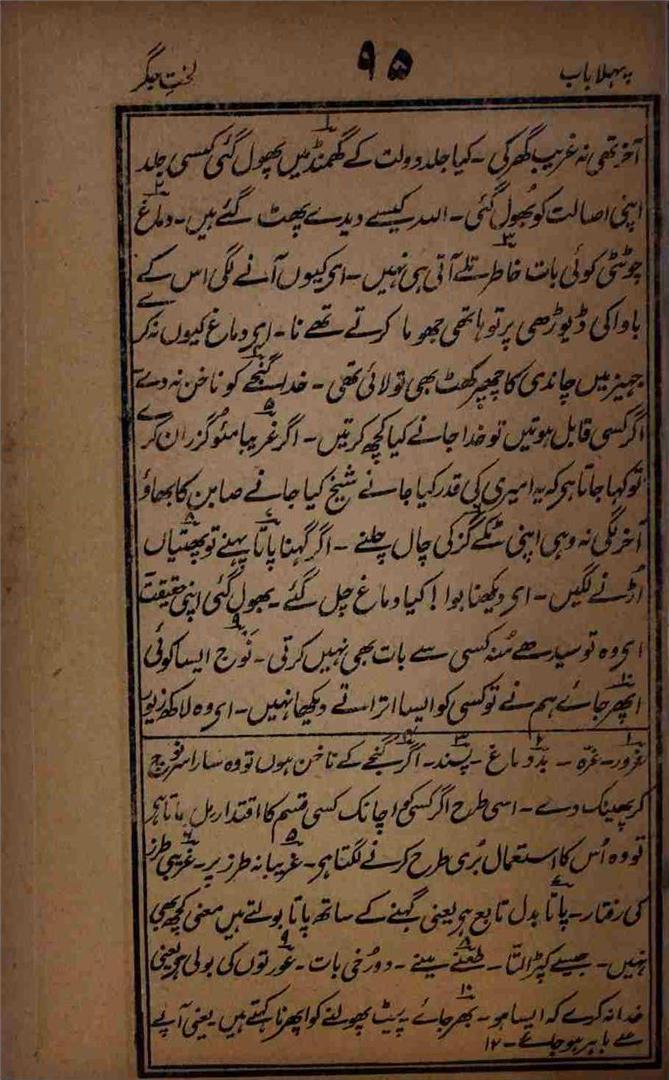 پہلا باب ۹۵ لختِ جگر
آخر تھی نہ غریب گھر کی ۔ کیا جلد دولت کے گھمنڈ۱ میں پھول گئی کیسی جلد
اپنی اصالت کو بھول گئی ۔ اللہ کیسے دیدے پھٹ گئے ہیں ۔ دماغ۲
چوٹٹی کوئی بات خاطر۳ تلے آتی ہی نہیں ۔ اے کیوں آنے لگی اس کے
باوا کی ڈیوڑھی پر تو ہاتھی جھوما کرتے تھے نا ۔ اے دماغ کیوں نہ کرے
جہیز میں چاندی کا چھپر کھٹ بھی تو لائی تھی ۔ خدا گنجے۴ کو ناخن نہ دے
اگر کسی قابل ہوتیں تو خدا جانے کیا کچھ کرتیں ۔ اگر غریبا مئو۵ گزران کرے
تو کہا جاتا ہے کہ یہ امیری کی قدر کیا جانے شیخ کیا جانے صابن کا بھاؤ
آخر لگی نہ وہی اپنی ٹکے گز۶ کی چال چلنے ۔ اگر گہنا پاتا۷ پہنے تو پھبتیاں۸
اُڑنے لگیں ۔ اے دیکھنا بوا ! کیا دماغ چل گئے ۔ بھول گئی اپنی حقیقت
اے وہ تو سیدھے مُنہ کسی سے بات بھی نہیں کرتی ۔ نَوج۹ ایسا کوئی
اپھر جائے۱۰ ہم نے تو کسی کو ایسا اتراتے دیکھا نہیں ۔ اے وہ لاکھ زیور
۱ غرور ۔ غرّہ ۔ ۲ بد دماغ ۔ ۳ پسند ۔ ۴ اگر گنجے کے ناخن ہوں تو وہ سارا سر نوچ
کر پھینک دے ۔ اسی طرح اگر کسی کو اچانک کسی قسم کا اقتدار مل جاتا ہے
تو وہ اُس کا استعمال بُری طرح کرنے لگتا ہے ۔ ۵ غریبانہ طرز پر ۔ ۶ غریبی طرز
کی رفتار ۔ ۷ پاتا بدل تابع ہے یعنی گہنے کے ساتھ پاتا بولتے ہیں معنی کچھ بھی
نہیں ۔ جیسے کپڑا لتّا ۔ ۸ طعنے مینے ۔ دو رُخی بات ۔ ۹ عورتوں کی بولی ہے یعنی
خدا نہ کرے کہ ایسا ہو ۔ ۱۰ بھر جائے پیٹ پھولنے کو اپھرنا کہتے ہیں یعنی آپے
سے باہر ہو جائے ۔ ۱۲